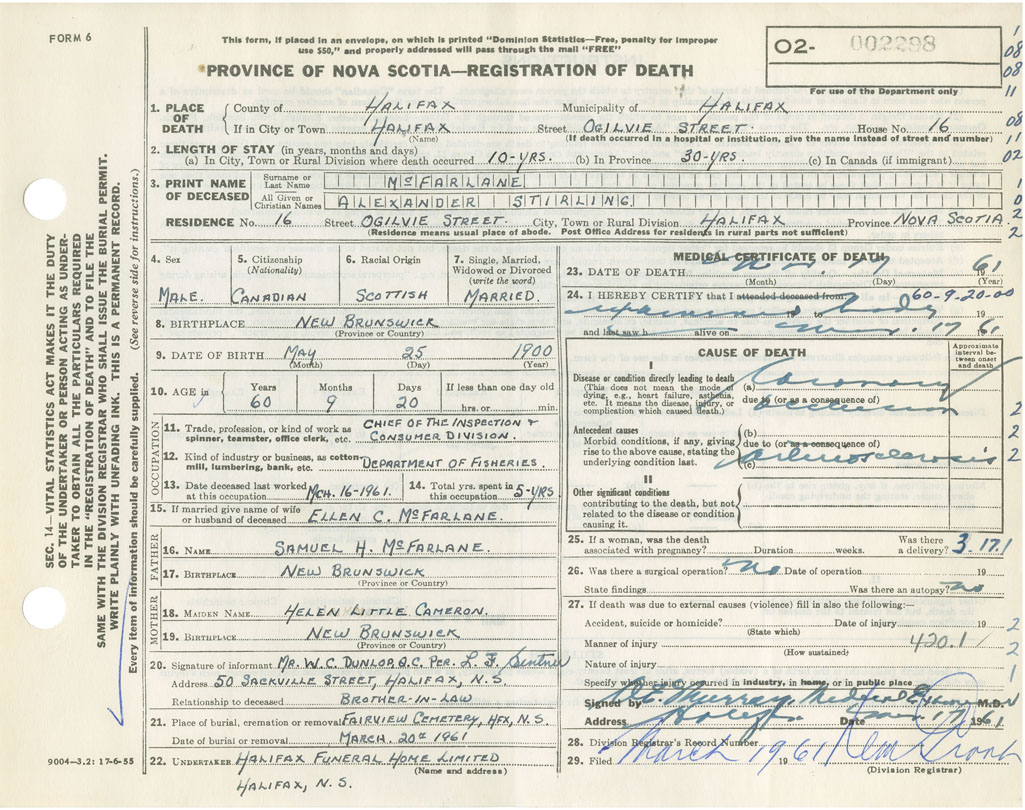 FORM 6
This form, if placed in an envelope, on which is printed "Dominion Statistics—Free, penalty for improper
use $50," and properly addressed will pass through the mail "FREE"
PROVINCE OF NOVA SCOTIA—REGISTRATION OF DEATH
02- 002298
For use of the Department only
SEC. 14—VITAL STATISTICS ACT MAKES IT THE DUTY
OF THE UNDERTAKER OR PERSON ACTING AS UNDER-
TAKER TO OBTAIN ALL THE PARTICULARS REQUIRED
IN THE "REGISTRATION OF DEATH" AND TO FILE THE
SAME WITH THE DIVISION REGISTRAR WHO SHALL ISSUE THE BURIAL PERMIT.
WRITE PLAINLY WITH UNFADING INK. THIS IS A PERMANENT RECORD.
Every item of information should be carefully supplied. (See reverse side for instructions.)
1. PLACE OF DEATH
County of HALIFAX Municipality of HALIFAX
If in City or Town HALIFAX Street OGILVIE STREET. House No. 16
(Name) (If death occurred in a hospital or institution, give the name instead of street and number)
2. LENGTH OF STAY (in years, months and days)
(a) In City, Town or Rural Division where death occurred 10-YRS. (b) In Province 30-YRS. (c) In Canada (if immigrant)
3. PRINT NAME OF DECEASED
Surname or Last Name McFARLANE
All Given or Christian Names ALEXANDER STIRLING
RESIDENCE No. 16 Street OGILVIE STREET. City, Town or Rural Division HALIFAX Province NOVA SCOTIA
(Residence means usual place of abode. Post Office Address for residents in rural parts not sufficient)
4. Sex 5. Citizenship (Nationality) 6. Racial Origin 7. Single, Married, Widowed or Divorced (write the word)
MALE. CANADIAN SCOTTISH MARRIED.
8. BIRTHPLACE NEW BRUNSWICK
(Province or Country)
9. DATE OF BIRTH MAY 25 1900
(Month) (Day) (Year)
10. AGE in Years Months Days If less than one day old
60 9 20 hrs. or min.
OCCUPATION
11. Trade, profession, or kind of work as spinner, teamster, office clerk, etc. CHIEF OF THE INSPECTION & CONSUMER DIVISION.
12. Kind of industry or business, as cotton-mill, lumbering, bank, etc. DEPARTMENT OF FISHERIES.
13. Date deceased last worked at this occupation MCH. 16-1961. 14. Total yrs. spent in this occupation 5-YRS
15. If married give name of wife or husband of deceased ELLEN C. McFARLANE.
FATHER
16. NAME SAMUEL H. McFARLANE.
17. BIRTHPLACE NEW BRUNSWICK
(Province or Country)
MOTHER
18. MAIDEN NAME HELEN LITTLE CAMERON.
19. BIRTHPLACE NEW BRUNSWICK
(Province or Country)
20. Signature of informant MR. W.C. DUNLOP, Q.C. PER. L. F.
Address 50 SACKVILLE STREET, HALIFAX, N.S.
Relationship to deceased BROTHER-IN-LAW
21. Place of burial, cremation or removal FAIRVIEW CEMETERY, HFX, N.S.
Date of burial or removal MARCH. 20TH 1961
22. UNDERTAKER HALIFAX FUNERAL HOME LIMITED
(Name and address)
HALIFAX, N.S.
9004—3.2: 17-6-55
MEDICAL CERTIFICATE OF DEATH
23. DATE OF DEATH 17 1961
(Month) (Day) (Year)
24. I HEREBY CERTIFY that I attended deceased from: 60-9-20-00
body
19 to 19
and last saw h alive on 17 1961
CAUSE OF DEATH
Approximate interval between onset and death
I
Disease or condition directly leading to death
(This does not mean the mode of dying, e.g., heart failure, asthenia, etc. It means the disease, injury, or complication which caused death.)
(a) Coronary
due to (or as a consequence of)
occlusion
Antecedent causes
Morbid conditions, if any, giving rise to the above cause, stating the underlying condition last.
(b)
due to (or as a consequence of)
(c) arteriosclerosis
II
Other significant conditions
contributing to the death, but not related to the disease or condition causing it.
25. If a woman, was the death associated with pregnancy? Duration weeks. Was there a delivery? 3.17.1
26. Was there a surgical operation? no Date of operation 19
State findings Was there an autopsy? no
27. If death was due to external causes (violence) fill in also the following:—
Accident, suicide or homicide? Date of injury 19
(State which)
Manner of injury 420.1
(How sustained)
Nature of injury
Specify whether injury occurred in industry, in home, or in public place
Signed by Murray, M.D.
Address Date 17 1961
28. Division Registrar's Record Number
29. Filed March 19 1961
(Division Registrar)